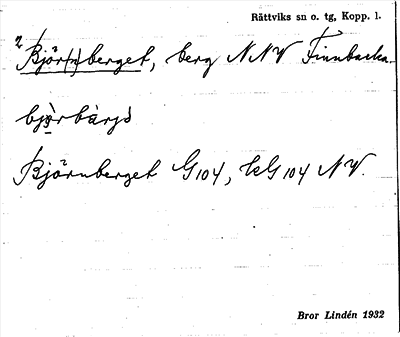 Rättviks sn o. tg, Kopp. l.
2 Björ(n)berget, berg NNV Finnbacka.
Björnberget G104, EG104 NV.
Bror Lindén 1932